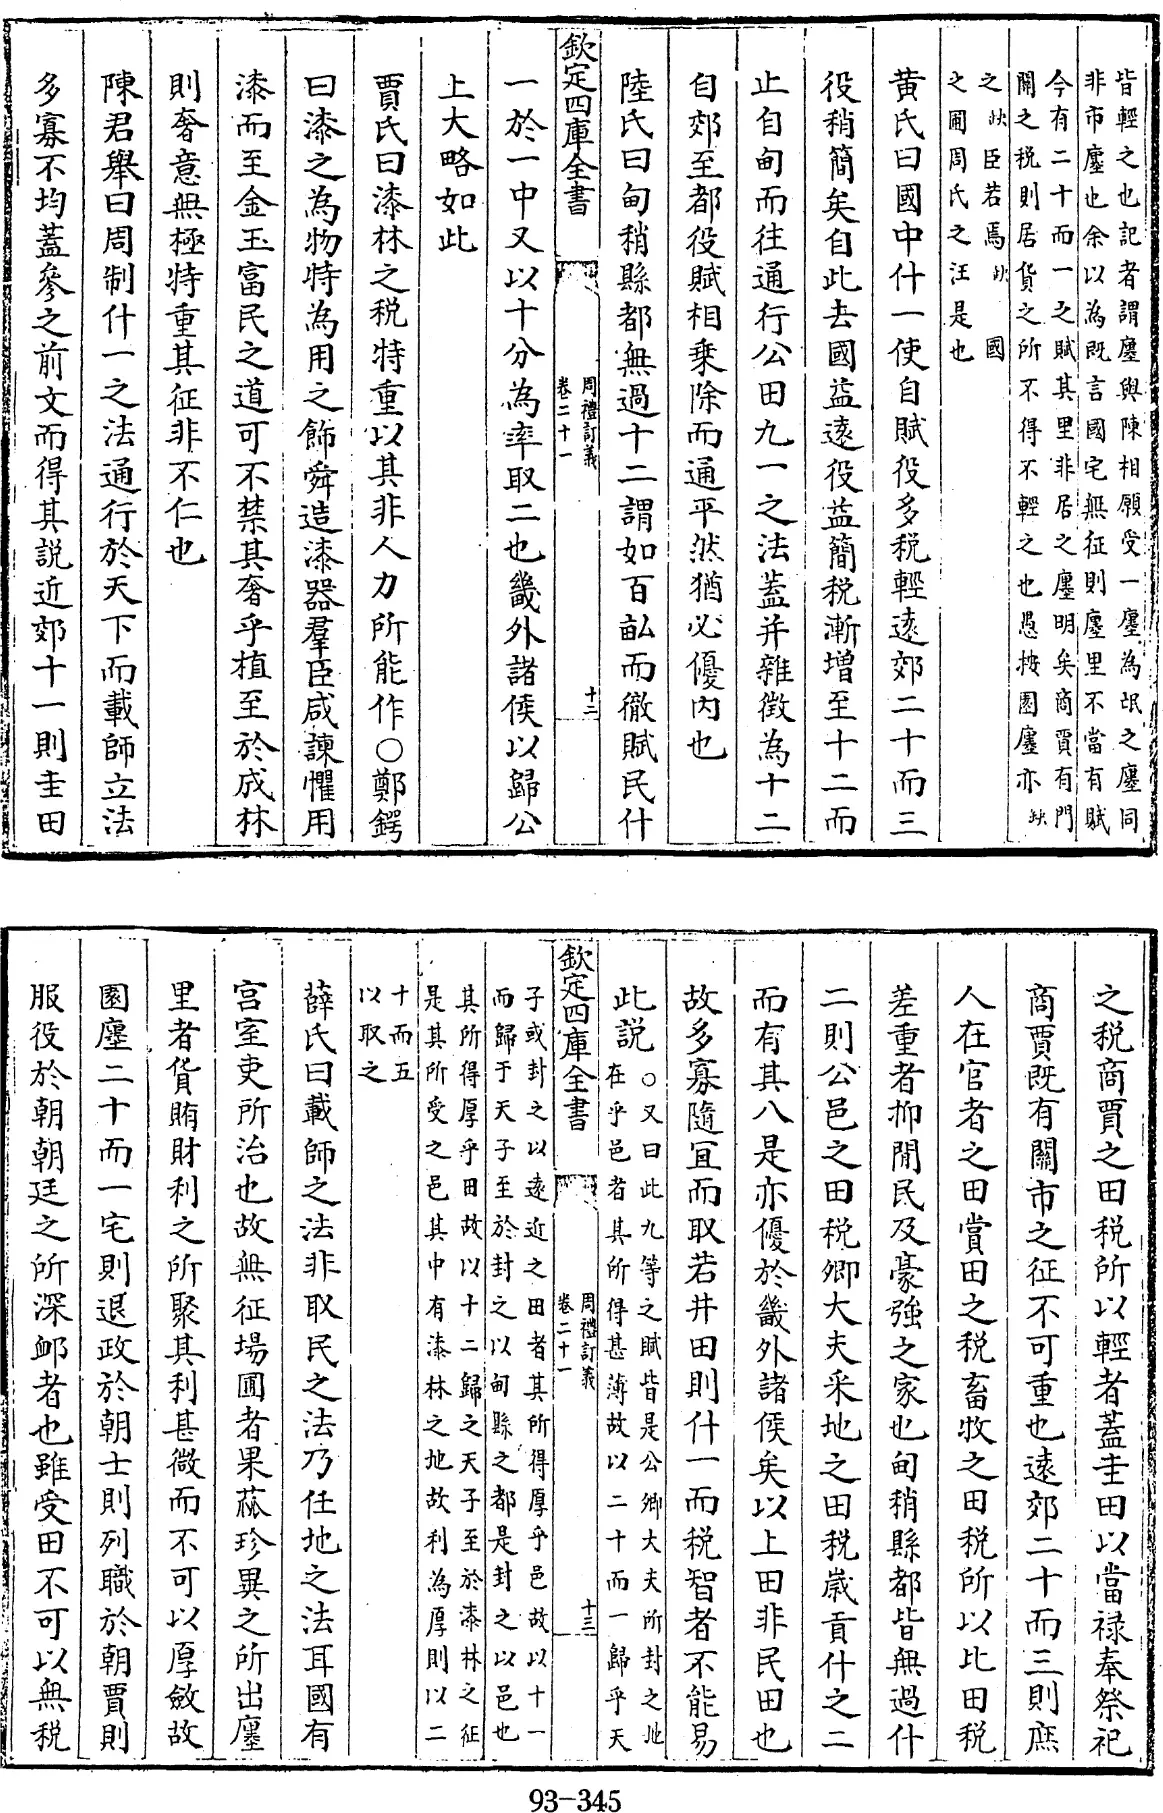 皆輕之也記者謂廛與陳相願受一廛為氓之廛同
非市廛也余以為既言國宅無征則廛里不當有賦
今有二十而一之賦其里非居之廛明矣商賈有門
關之税則居貨之所不得不輕之也愚按園廛亦缺
之缺臣若焉缺國
之圃周氏之汪是也
黄氏曰國中什一使自賦役多税輕逺郊二十而三
役稍簡矣自此去國益逺役益簡税漸增至十二而
止自甸而往通行公田九一之法蓋并雜徵為十二
自郊至都役賦相乗除而通平然猶必優内也
陸氏曰甸稍縣都無過十二謂如百畆而徹賦民什
欽定四庫全書
周禮訂義
卷二十一
十二
一於一中又以十分為率取二也畿外諸侯以歸公
上大略如此
賈氏曰漆林之税特重以其非人力所能作○鄭鍔
曰漆之為物特為用之飾舜造漆器羣臣咸諫懼用
漆而至金玉富民之道可不禁其奢乎植至於成林
則奢意無極特重其征非不仁也
陳君舉曰周制什一之法通行於天下而載師立法
多寡不均蓋參之前文而得其説近郊十一則圭田
之税商賈之田税所以輕者蓋圭田以當禄奉祭祀
商賈既有關市之征不可重也逺郊二十而三則庶
人在官者之田賞田之税畜牧之田税所以比田税
差重者抑閒民及豪強之家也甸稍縣都皆無過什
二則公邑之田税卿大夫采地之田税嵗貢什之二
而有其八是亦優於畿外諸侯矣以上田非民田也
故多寡隨宜而取若井田則什一而税智者不能易
此説○又曰此九等之賦皆是公卿大夫所封之地
在乎邑者其所得甚薄故以二十而一歸乎天
欽定四庫全書
周禮訂義
卷二十一
十三
子或封之以逺近之田者其所得厚乎邑故以十一
而歸于天子至於封之以甸縣之都是封之以邑也
其所得厚乎田故以十二歸之天子至於漆林之征
是其所受之邑其中有漆林之地故利為厚則以二
十而五
以取之
薛氏曰載師之法非取民之法乃任地之法耳國有
宫室吏所治也故無征場圃者果蓏珍異之所出廛
里者貨賄財利之所聚其利甚微而不可以厚斂故
園廛二十而一宅則退政於朝士則列職於朝賈則
服役於朝朝廷之所深卹者也雖受田不可以無税
93-345